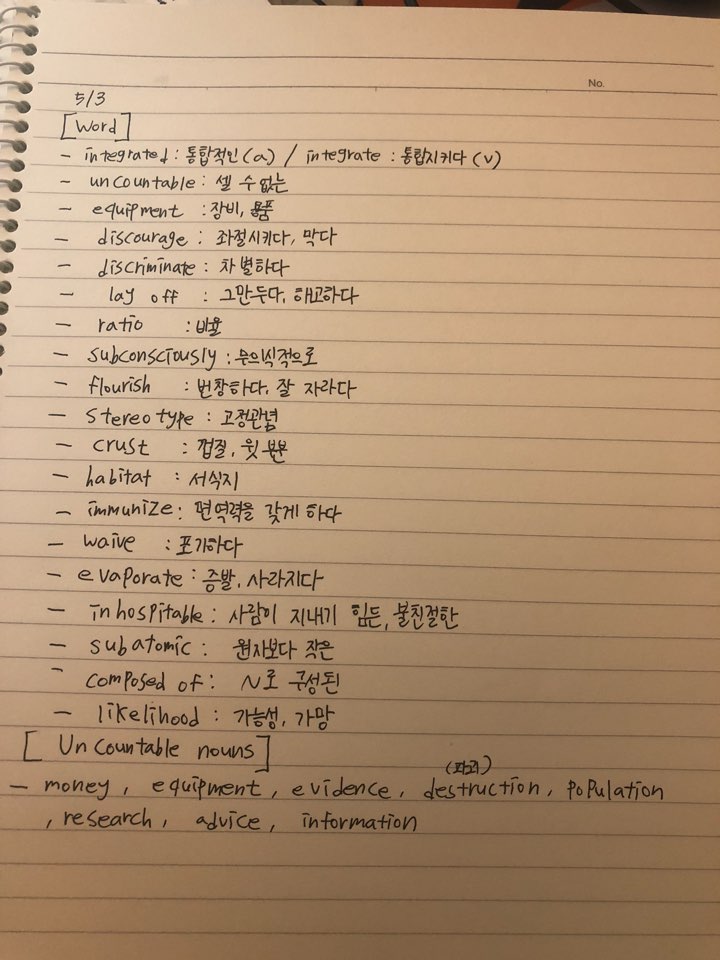 No.
5/3
[Word]
- integrated : 통합적인 (a) / integrate : 통합시키다 (v)
- uncountable : 셀 수 없는
- equipment : 장비, 용품
- discourage : 좌절시키다, 막다
- discriminate : 차별하다
- lay off : 그만두다, 해고하다
- ratio : 비율
- subconsciously : 무의식적으로
- flourish : 번창하다, 잘 자라다
- stereotype : 고정관념
- crust : 껍질, 윗 부분
- habitat : 서식지
- immunize : 면역력을 갖게 하다
- waive : 포기하다
- evaporate : 증발, 사라지다
- inhospitable : 사람이 지내기 힘든, 불친절한
- subatomic : 원자보다 작은
- composed of : N로 구성된
- likelihood : 가능성, 가망
[Uncountable nouns]
(파괴)
- money, equipment, evidence, destruction, population
, research, advice, information